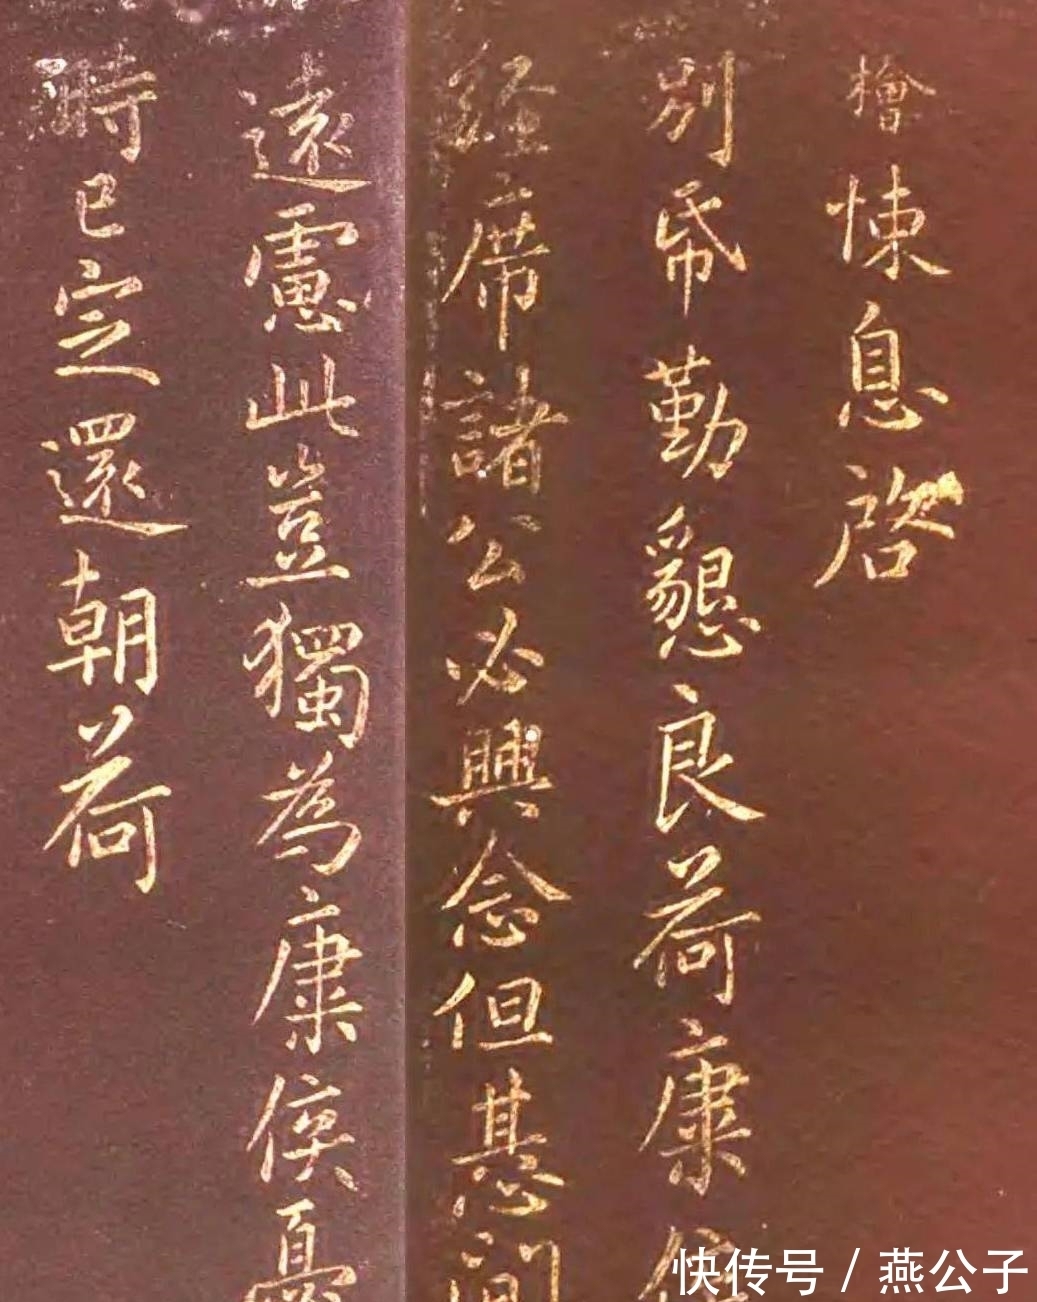 檜悚息啓
別帋勤懇良荷康侯
經席諸公必興念但惎間
遠慮此豈獨為康侯憂
時已定還朝荷
快传号 / 燕公子